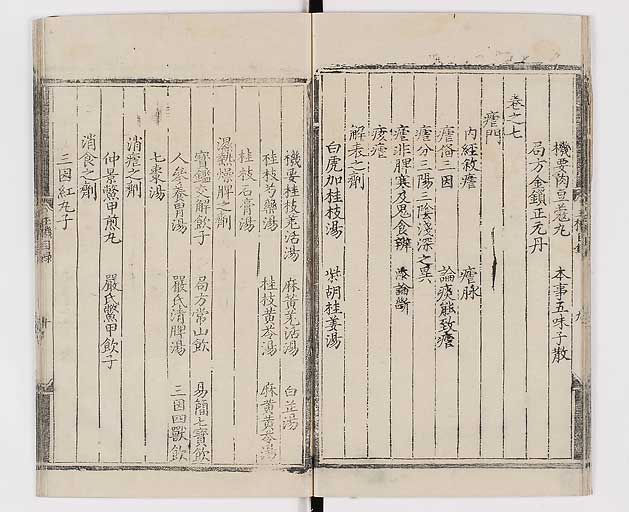 機要肉豆蔲丸 本事五味子散
局方金鎖正元丹
卷之七
瘧門
內經敘瘧 瘧脉
瘧備三因 論痰能致瘧
瘧分三陽三陰淺深之異
瘧非脾寒及鬼食辦 㳺論斷
痎瘧
解表之劑
白虎加桂枝湯 柴胡桂姜湯
機要桂枝羌活湯 麻黃羌活湯 白芷湯
桂枝芍藥湯 桂枝黃芩湯 麻黃黃芩湯
桂枝石膏湯
濕熱燥脾之劑
寶鑑交解飲子 局方常山飲 易簡七寶飲
人參養胃湯 嚴氏清脾湯 三因四獸飲
七棗湯
消瘧之劑
仲景鱉甲煎丸 嚴氏鱉甲飲子
消食之劑
三因紅丸子